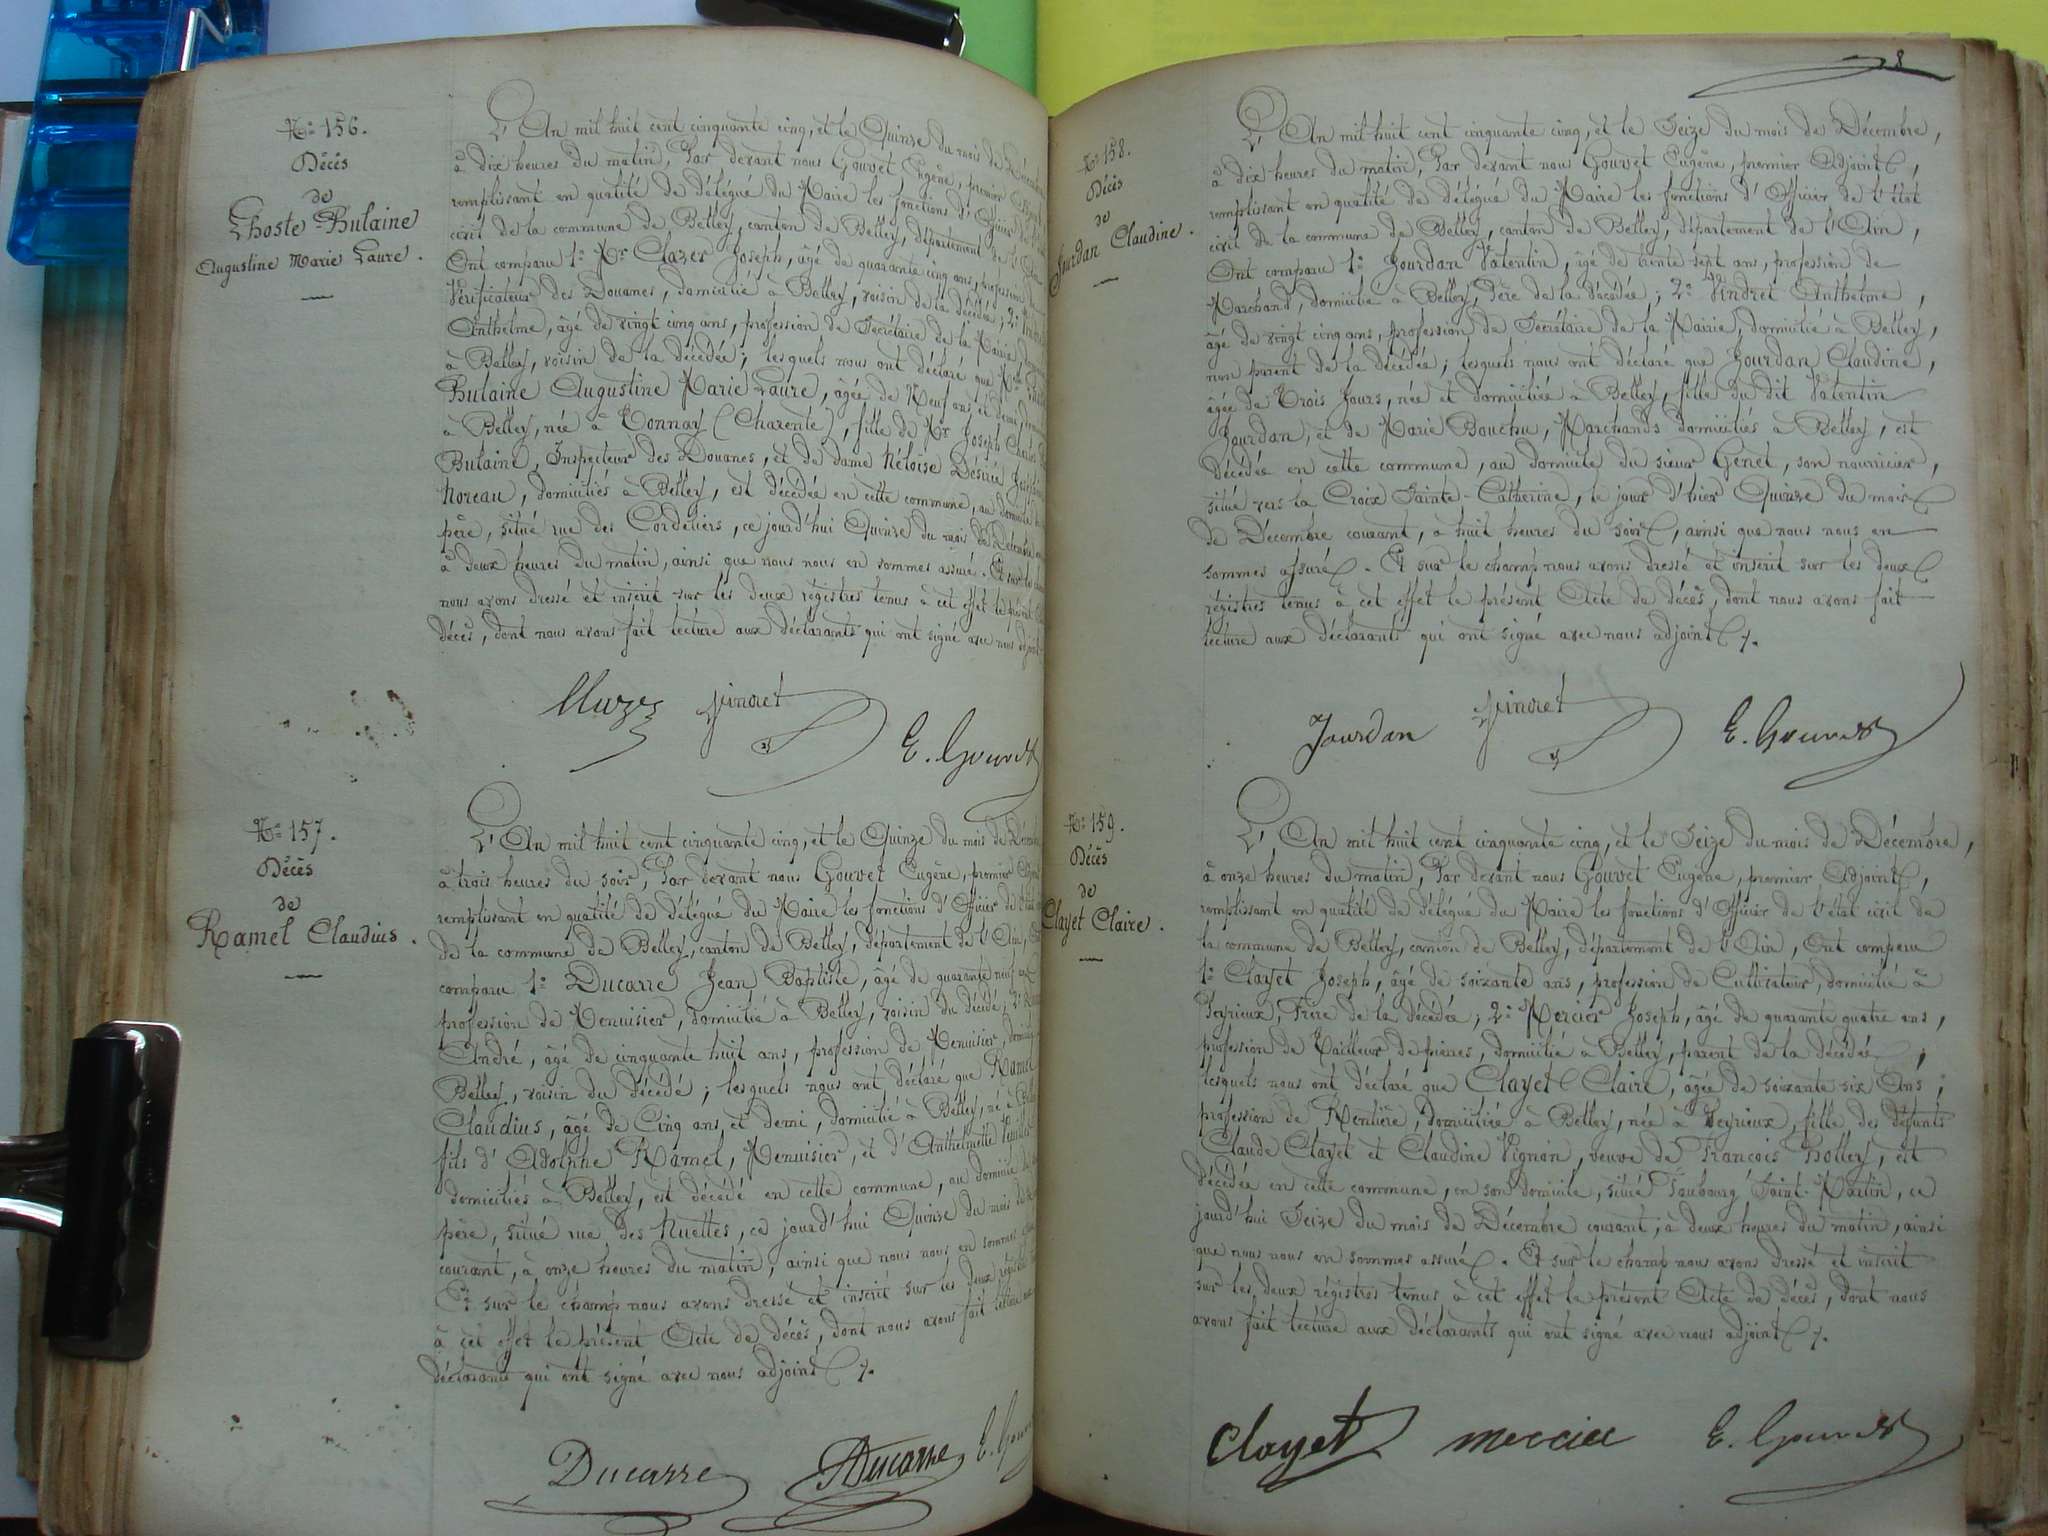 N° 156.
Décès
de
Lhoste-Bulaine
Augustine Marie Laure.
L'An mil huit cent cinquante cinq, et le Quinze du mois de Décembre
à dix heures du matin, Par devant nous Gouvet Eugène, premier
remplissant en qualité de délégué du Maire les fonctions d'Officier de
civil de la commune de Belley, canton de Belley, département de l'Ain
Ont comparu 1° Mr Joseph, âgé de quarante cinq ans, profession de
Vérificateur des Douanes, domicilié à Belley, voisin de la décédée; 2°
Anthelme, âgé de vingt cinq ans, profession de Secrétaire de la Mairie,
à Belley, voisin de la décédée; lesquels nous ont déclaré que
Bulaine Augustine Marie Laure, âgée de Neuf ans et demi,
à Belley, née à Tonnay (Charente), fille de Mr Joseph Charles
Bulaine, Inspecteur des Douanes, et de dame Héloïse Désirée
Noreau, domiciliés à Belley, est décédée en cette commune, au domicile
père, situé rue des Cordeliers, ce jourd'hui Quinze du mois de Décembre
à deux heures du matin, ainsi que nous nous en sommes assuré. Et sur le
nous avons dressé et inscrit sur les deux régistres tenus à cet effet le présent
décès, dont nous avons fait lecture aux déclarants qui ont signé avec nous adjoint
Vindret
E. Gouvet
N° 157.
Décès
de
Ramel Claudius.
L'An mil huit cent cinquante cinq, et le Quinze du mois de
à trois heures du soir, Par devant nous Gouvet Eugène, premier
remplissant en qualité de délégué du Maire les fonctions d'Officier de
de la commune de Belley, canton de Belley, département de l'Ain,
comparu 1° Ducarre Jean Baptiste, âgé de quarante neuf ans
profession de Menuisier, domicilié à Belley, voisin du décédé; 2°
André, âgé de cinquante huit ans, profession de Menuisier,
Belley, voisin du décédé; lesquels nous ont déclaré que Ramel
Claudius, âgé de Cinq ans et demi, domicilié à Belley, né à
fils d'Adolphe Ramel, Menuisier, et d'Anthelmette
domiciliés à Belley, est décédé en cette commune, au domicile
père, situé rue des Muettes, ce jourd'hui Quinze du mois de
courant, à onze heures du matin, ainsi que nous nous en sommes
Et sur le champ nous avons dressé et inscrit sur les deux
à cet effet le présent Acte de décès, dont nous avons fait lecture
déclarants qui ont signé avec nous adjoint ./.
Ducarre
Ducarre
E.
8
N° 158.
Décès
de
Jourdan Claudine.
L'An mil huit cent cinquante cinq, et le Seize du mois de Décembre,
à dix heures du matin, Par devant nous Gouvet Eugène, premier Adjoint,
remplissant en qualité de délégué du Maire les fonctions d'Officier de l'état
civil de la commune de Belley, canton de Belley, département de l'Ain,
Ont comparu 1° Jourdan Valentin, âgé de trente sept ans, profession de
Marchand, domicilié à Belley, Père de la décédée; 2° Vindret Anthelme,
âgé de vingt cinq ans, profession de Secrétaire de la Mairie, domicilié à Belley,
non parent de la décédée; lesquels nous ont déclaré que Jourdan Claudine,
âgée de Trois Jours, née et domiciliée à Belley, fille du dit Valentin
Jourdan, et de Marie Bouchu, Marchands domiciliés à Belley, est
décédée en cette commune, au domicile du sieur Genet, son nourricier,
situé vers la Croix Sainte-Catherine, le jour d'hier Quinze du mois
de Décembre courant, à huit heures du soir, ainsi que nous nous en
sommes assuré. Et sur le champ nous avons dressé et inscrit sur les deux
régistres tenus à cet effet le présent Acte de décès, dont nous avons fait
lecture aux déclarants qui ont signé avec nous adjoint ./.
Jourdan
Vindret
E. Gouvet
N° 159.
Décès
de
Clayet Claire.
L'An mil huit cent cinquante cinq, et le Seize du mois de Décembre,
à onze heures du matin, Par devant nous Gouvet Eugène, premier Adjoint,
remplissant en qualité de délégué du Maire les fonctions d'Officier de l'état civil de
la commune de Belley, canton de Belley, département de l'Ain, Ont comparu
1° Clayet Joseph, âgé de soixante ans, profession de Cultivateur, domicilié à
Peyrieux, Frère de la décédée; 2° Mercier Joseph, âgé de quarante quatre ans,
profession de Tailleur de pierres, domicilié à Belley, parent de la décédée,
lesquels nous ont déclaré que Clayet Claire, âgée de soixante six Ans,
profession de Rentière, domiciliée à Belley, née à Peyrieux, fille des défunts
Claude Clayet et Claudine Vignon, veuve de François Bolley, est
décédée en cette commune, en son domicile, situé Faubourg Saint-Martin, ce
jourd'hui Seize du mois de Décembre courant, à deux heures du matin, ainsi
que nous nous en sommes assuré. Et sur le champ nous avons dressé et inscrit
sur les deux régistres tenus à cet effet le présent Acte de décès, dont nous
avons fait lecture aux déclarants qui ont signé avec nous adjoint ./.
Clayet
Mercier
E. Gouvet